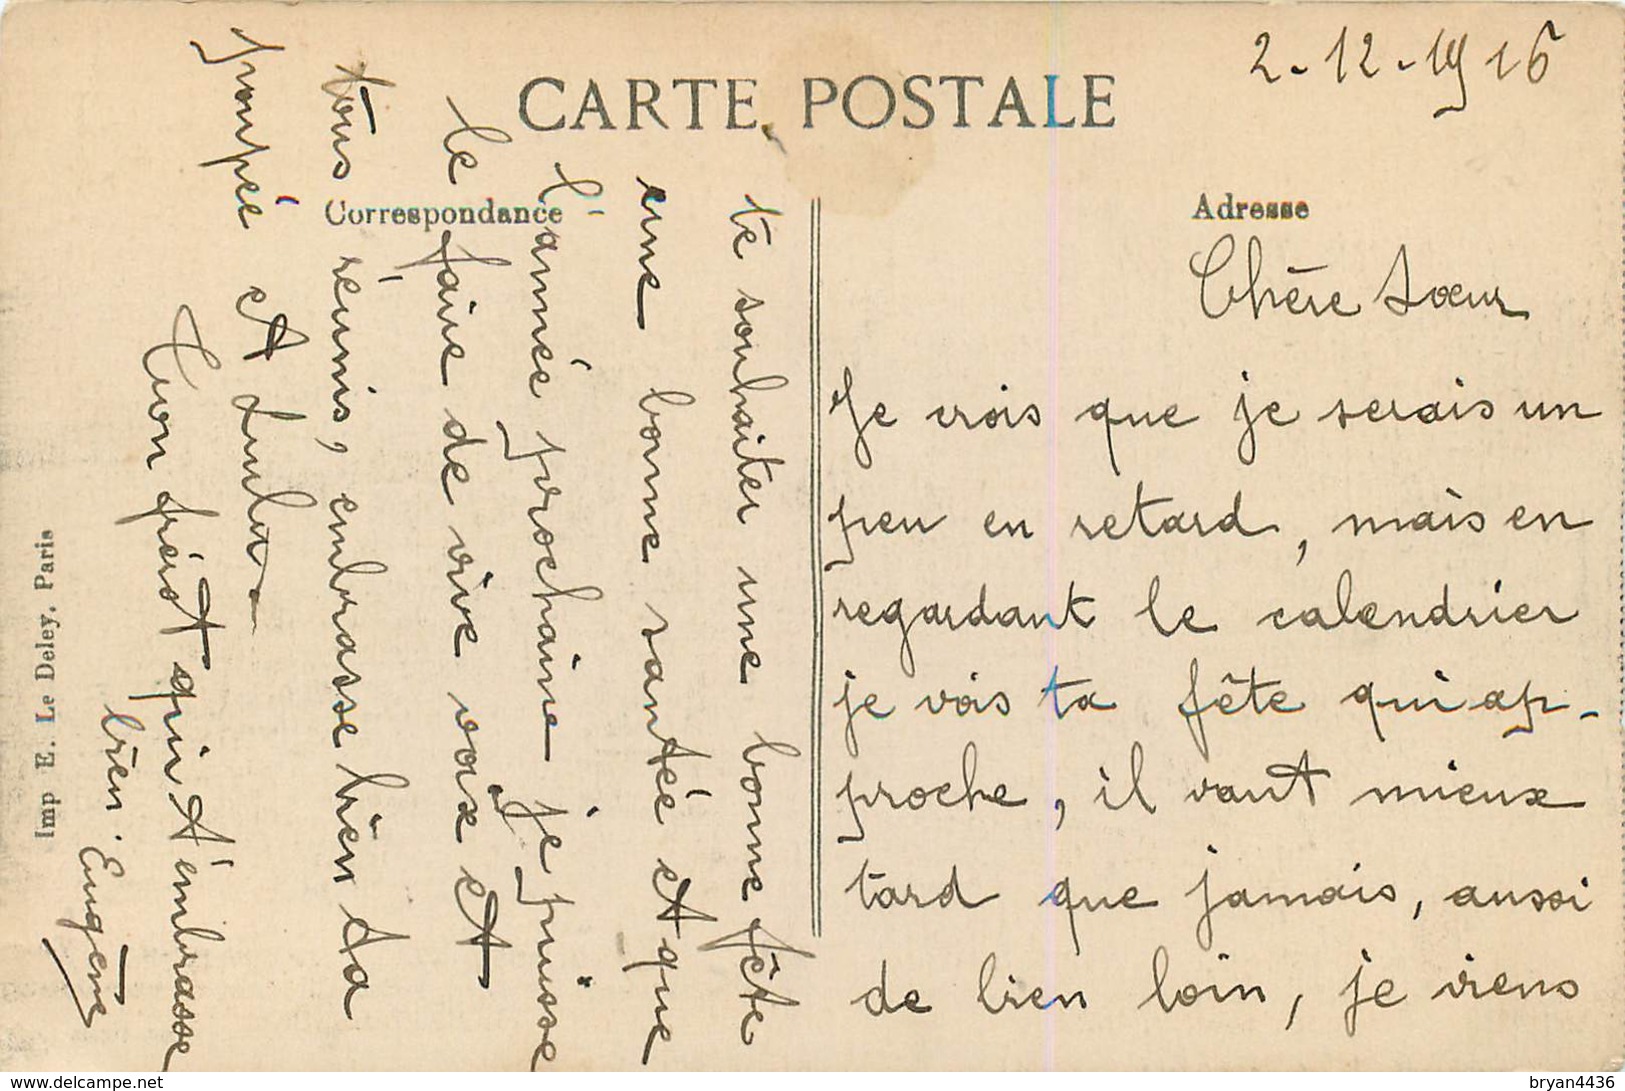 2-12-1916
CARTE POSTALE
Correspondance
Adresse
Chère Sœur
Je crois que je serais un
peu en retard, mais en
regardant le calendrier
je vois ta fête qui ap-
proche, il vaut mieux
tard que jamais, aussi
de bien loin, je viens
te souhaiter une bonne fête
une bonne santé et que
l'année prochaine je puisse
le faire de vive voix et
tous réunis, embrasse bien ta
poupée et
Ton frérot qui t'embrasse
bien. Eugène
Imp E. Le Deley, Paris
delcampe.net
bryan4436